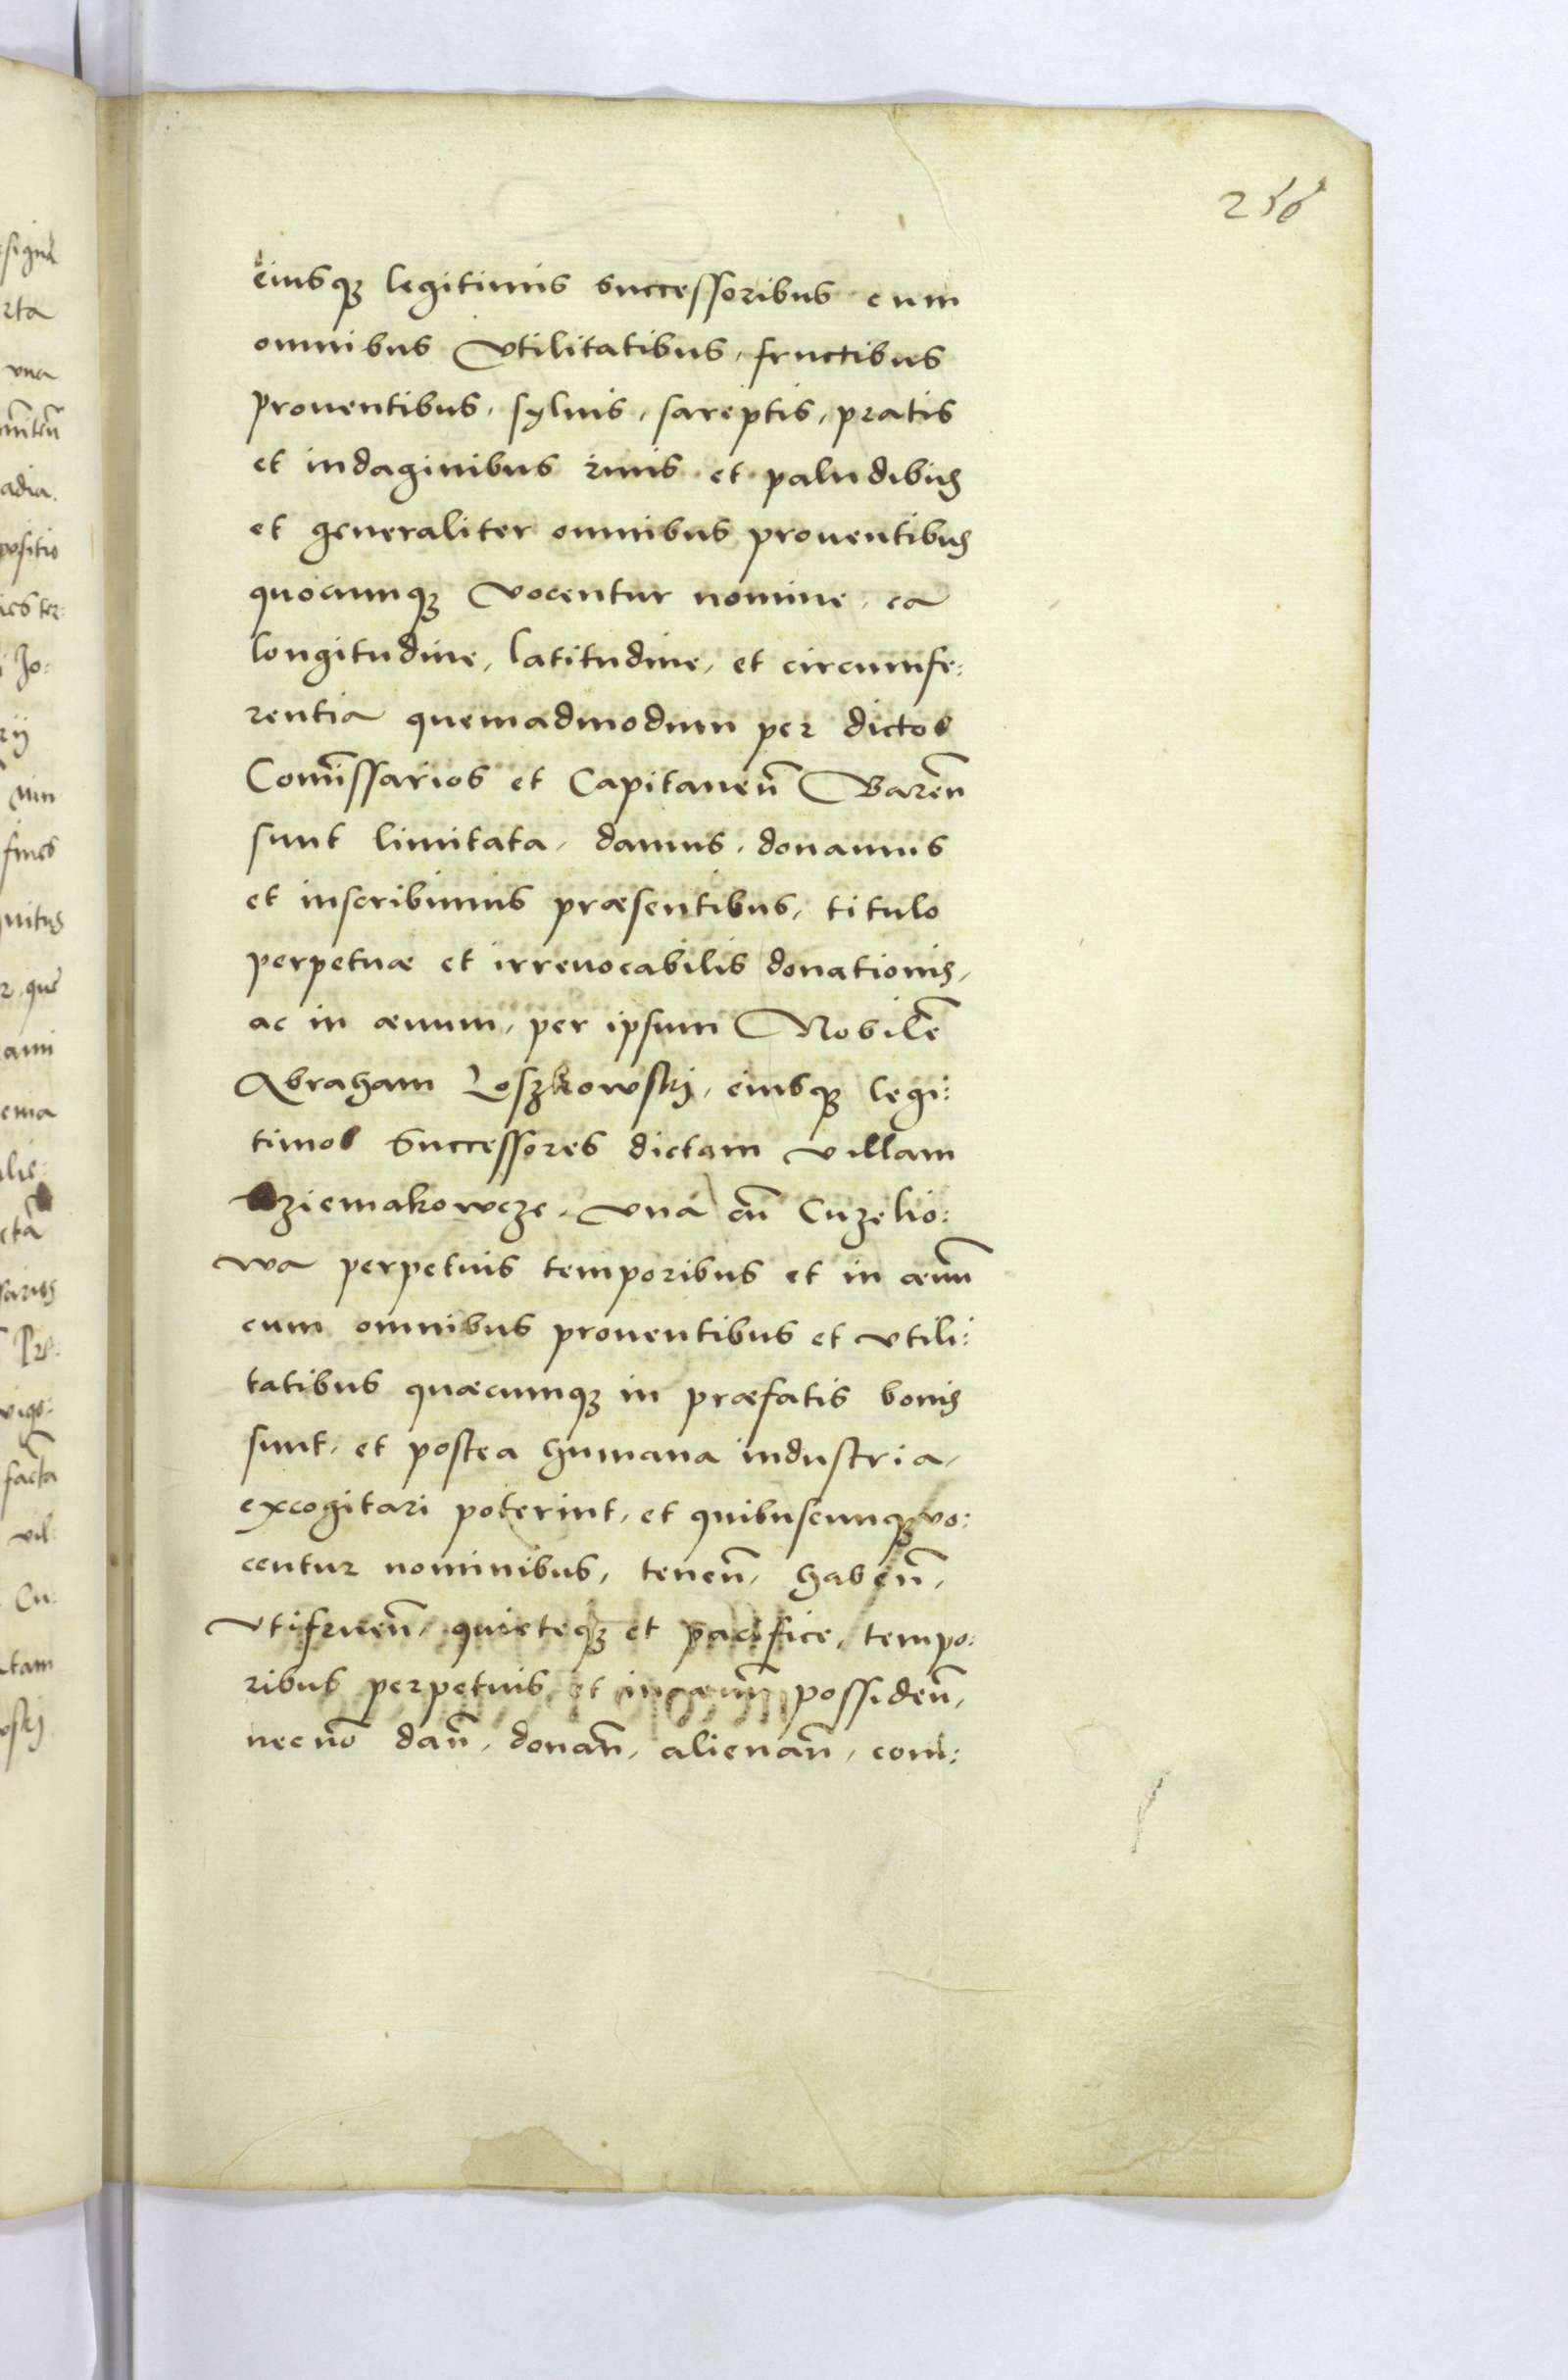 256
eiusq₃ legitimis successoribus cum
omnibus vtilitatibus, fructibus
prouentibus, syluis, sareptis, pratis
et indaginibus riuis et paludibus
et generaliter omnibus prouentibus
quocunq₃ vocentur nomine, ea
longitudine, latitudine, et circumfe:
rentia quemadmodum per dictos
Com̃issarios et Capitaneũ Bareñ
sunt limitata, damus, donamus
et inscribimus præsentibus, titulo
perpetuæ et irreuocabilis donationis,
ac in æuum, per ipsum Nobilẽ
Abraham Loszkowskj, eiusq₃ legi:
timos Successores dictam villam
Dziemakowcze, vna cũ Cuzelio:
wa perpetuis temporibus et in æuũ
cum omnibus prouentibus et vtili:
tatibus quæcumq₃ in præfatis bonis
sunt, et postea humana industria,
excogitari poterint, et quibuscunq₃ vo:
centur nominibus, teneñ, habeñ,
vtifrueñ, quieteq₃ et pacifice, tempo:
ribus perpetuis et in æuũ possideñ,
necnõ dañ, donañ, alienañ, com: